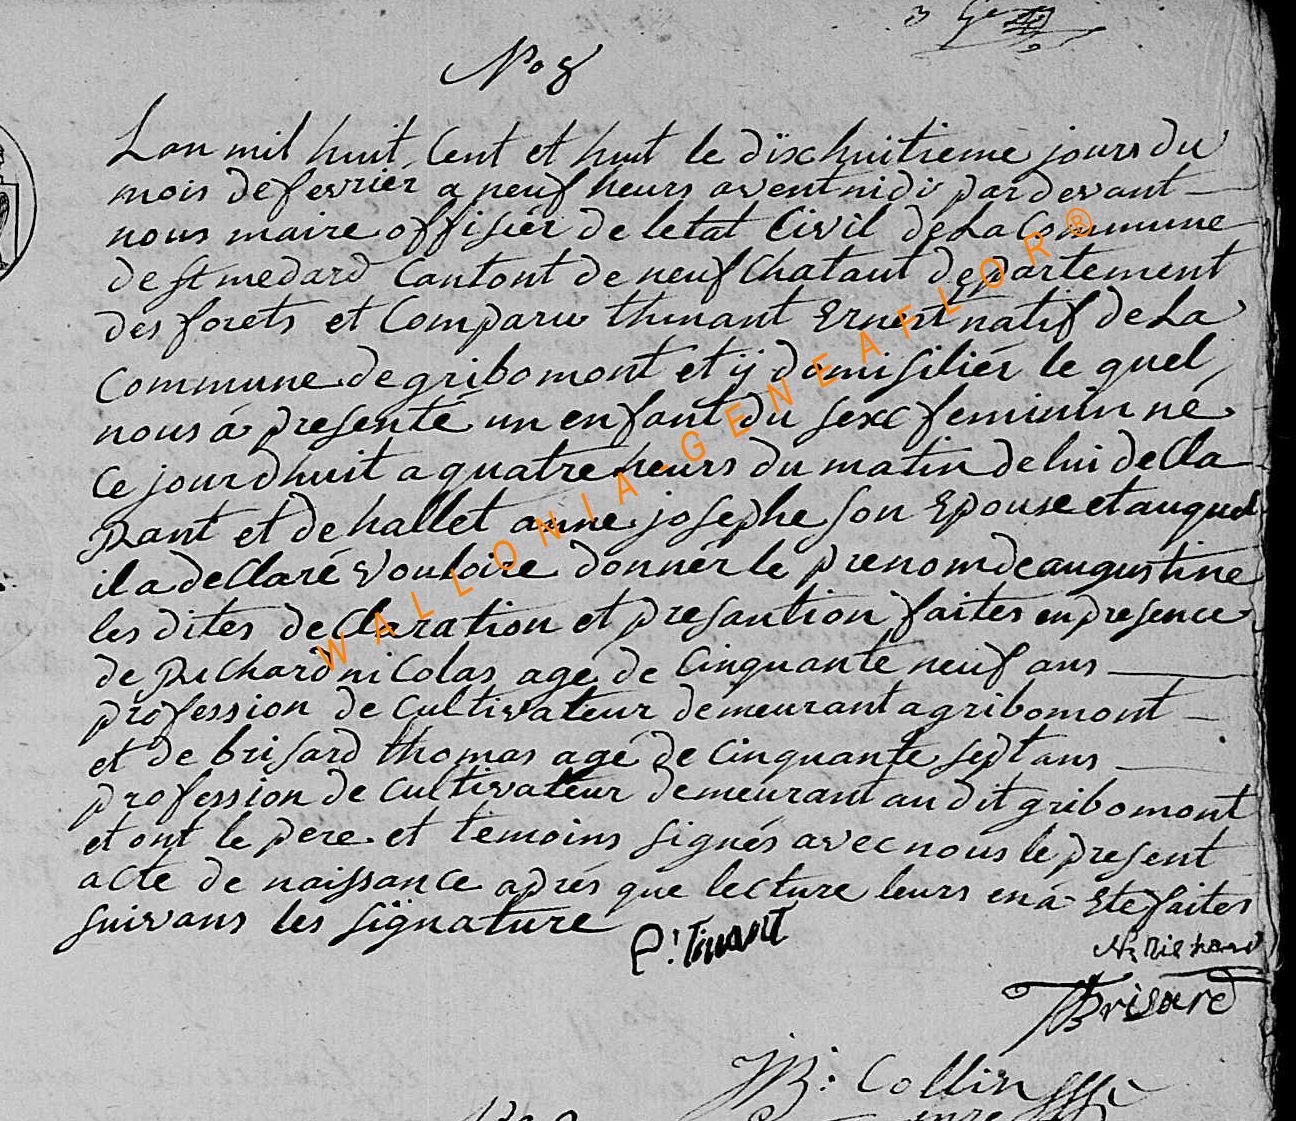 No 8
Lan mil huit Cent et huit le dïxhuitieme jours du
mois de fevrier a neuf heurs avent midi par devant
nous maire offisiér de letat Civil de La Commune
de St medard Cantont de neufchataut departement
des forets et Comparu thinant Ernest natif de La
Commune de gribomont et ÿ domisiliér le quel
nous á presenté un enfant du sexe feminin né
Ce jourdhuit a quatre heurs du matin de lui deCla
rant et de hallet anne josephe son Epouse et auquel
il a deClaré vouloire donnér le prenom de augustine
les dites deClaration et presantion faites en presence
de Richard niColas agé de Cinquante neuf ans
profession de Cultivateur demeurant a gribomont
et de brisard thomas agé de Cinquante sept ans
profession de Cultivateur demeurant au dit gribomont
et ont le pere et temoins signés avec nous le present
acte de naissance aprés que lecture leurs en á Eté faites
suivans les sïgnature
E: tinant
N: Richard
TBrisard
JB: Collin
WALLONIA-GENEAFLOR®